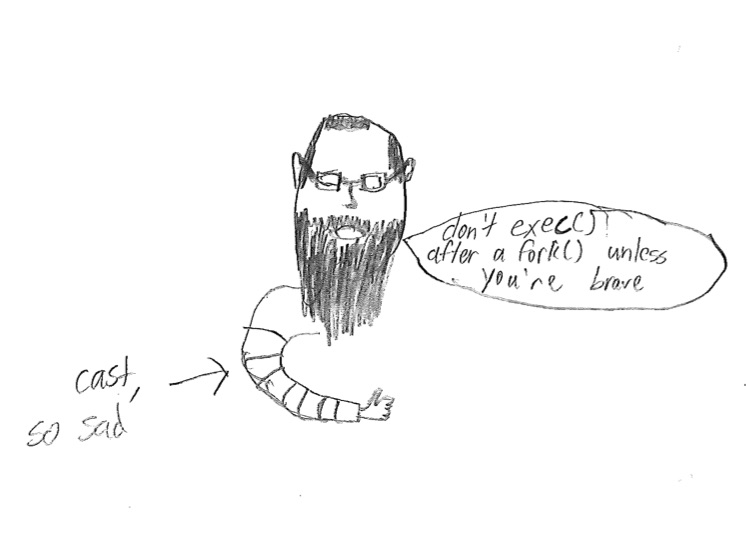 don't exec()
after a fork() unless
you're brave
cast,
so sad